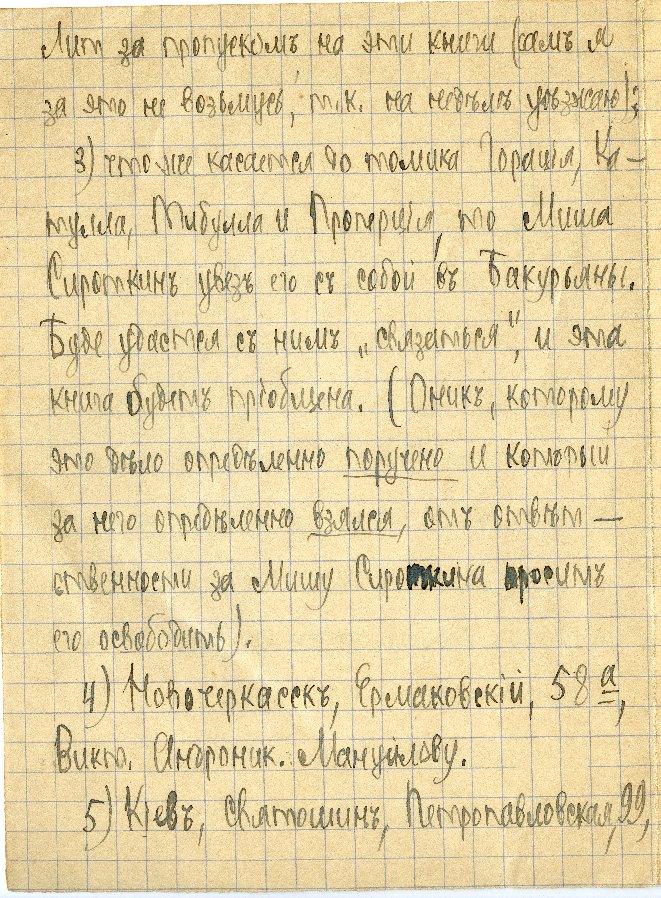 Лит за пропускомъ на эти книги (самъ я
за это не возьмусь, т.к. на недѣлѣ уѣзжаю);
3) что же касается до томика Горація, Ка-
тулла, Тибулла и Проперція, то Миша
Сироткинъ увезъ его съ собой въ Бакурьяны.
Буде удастся съ нимъ „связаться", и эта
книга будетъ пріобщена. (Оникъ, которому
это дѣло опредѣленно поручено и который
за него опредѣленно взялся, отъ отвѣт-
ственности за Мишу Сироткина проситъ
его освободить).
4) Новочеркасскъ, Ермаковскій, 58 а,
Викт. Андроник. Мануйлову.
5) Кіевъ, Святошинъ, Петропавловская, 99,